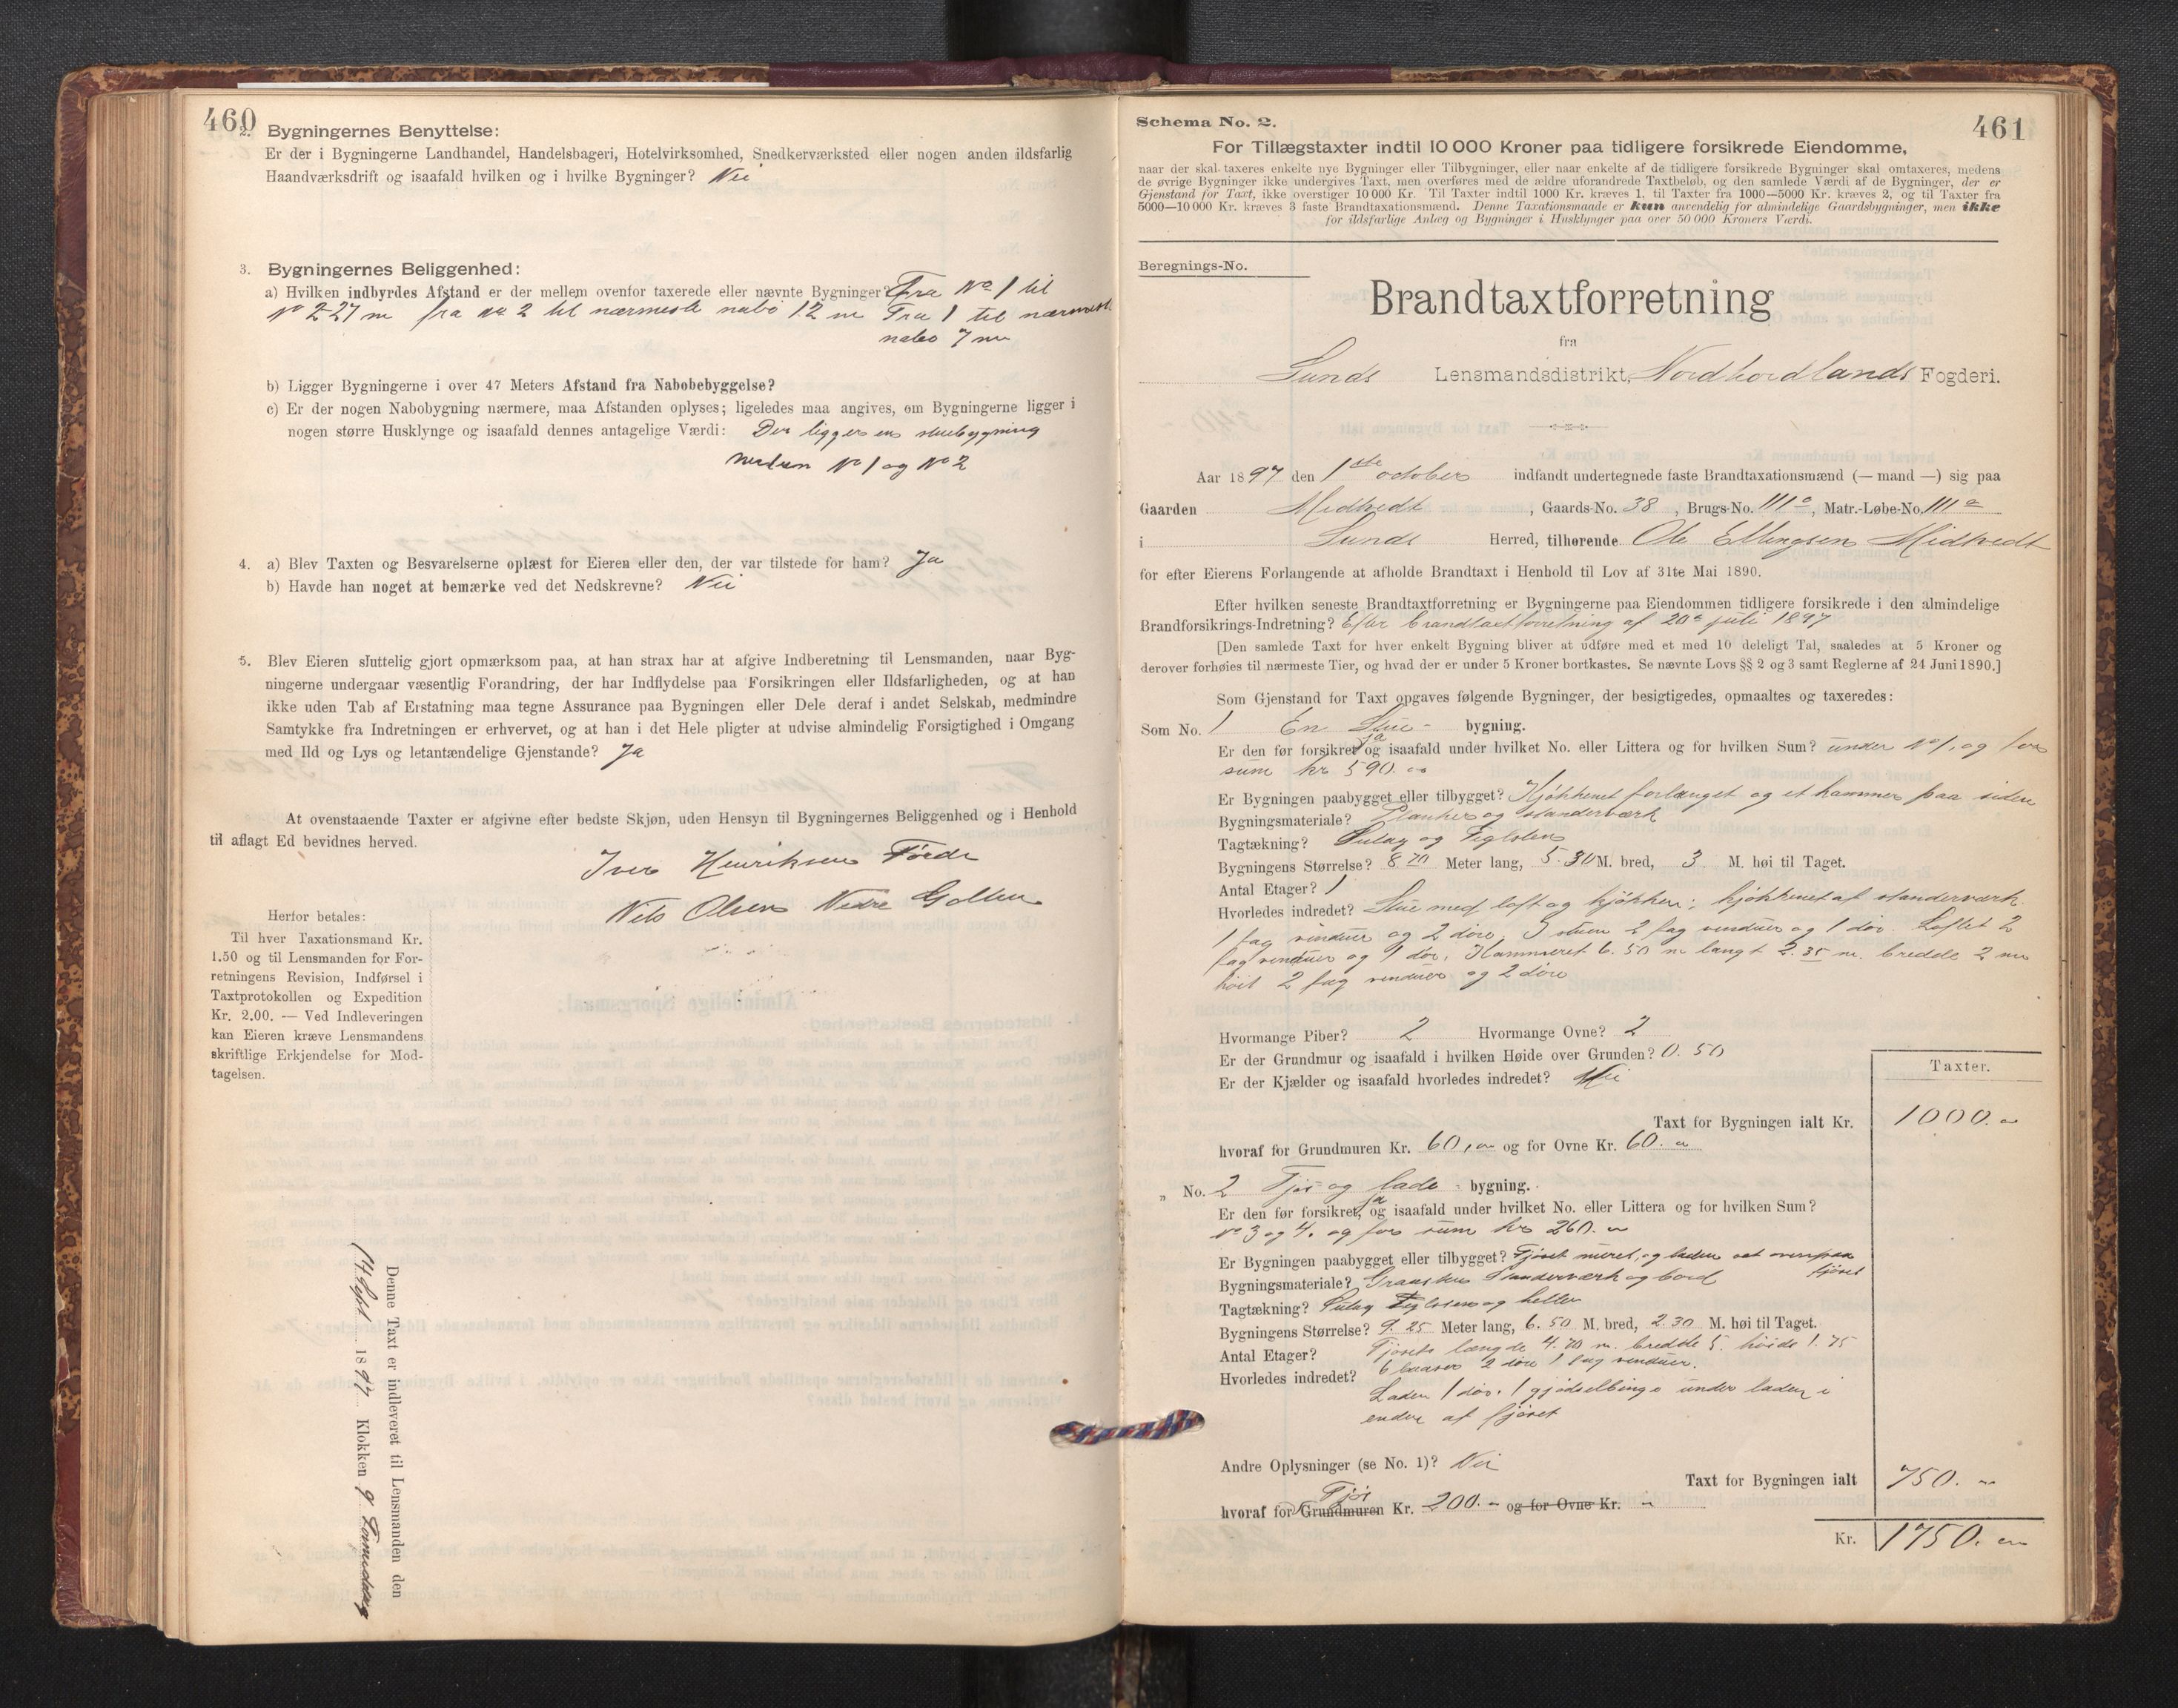 460
2. Bygningernes Benyttelse:
Er der i Bygningerne Landhandel, Handelsbageri, Hotelvirksomhed, Snedkerværksted eller nogen anden ildsfarlig
Haandværksdrift og isaafald hvilken og i hvilke Bygninger? Nei
3. Bygningernes Beliggenhed:
a) Hvilken indbyrdes Afstand er der mellem ovenfor taxerede eller nævnte Bygninger? Fra No 1 til
No 2 27 m fra No 2 til nærmeste nabo 12 m Fra 1 til nærmeste
nabo 7 m
b) Ligger Bygningerne i over 47 Meters Afstand fra Nabobebyggelse?
c) Er der nogen Nabobygning nærmere, maa Afstanden oplyses; ligeledes maa angives, om Bygningerne ligger i
nogen større Husklynge og isaafald dennes antagelige Værdi: Der ligger en stuebygning
mellem No 1 og No 2
4. a) Blev Taxten og Besvarelserne oplæst for Eieren eller den, der var tilstede for ham? Ja
b) Havde han noget at bemærke ved det Nedskrevne? Nei
5. Blev Eieren sluttelig gjort opmærksom paa, at han strax har at afgive Indberetning til Lensmanden, naar Byg-
ningerne undergaar væsentlig Forandring, der har Indflydelse paa Forsikringen eller Ildsfarligheden, og at han
ikke uden Tab af Erstatning maa tegne Assurance paa Bygningen eller Dele deraf i andet Selskab, medmindre
Samtykke fra Indretningen er erhvervet, og at han i det Hele pligter at udvise almindelig Forsigtighed i Omgang
med Ild og Lys og letantændelige Gjenstande? Ja
At ovenstaaende Taxter er afgivne efter bedste Skjøn, uden Hensyn til Bygningernes Beliggenhed og i Henhold
til aflagt Ed bevidnes herved.
Iver Henriksen Førde
Nils Olsen Nedre Golten
Herfor betales:
Til hver Taxationsmand Kr.
1.50 og til Lensmanden for For-
retningens Revision, Indførsel i
Taxtprotokollen og Expedition
Kr. 2.00. — Ved Indleveringen
kan Eieren kræve Lensmandens
skriftlige Erkjendelse for Mod-
tagelsen.
Denne Taxt er indleveret til Lensmanden den
14 Sept 1897 Klokken 9 Formiddag
461
Schema No. 2.
For Tillægstaxter indtil 10 000 Kroner paa tidligere forsikrede Eiendomme,
naar der skal taxeres enkelte nye Bygninger eller Tilbygninger, eller naar enkelte af de tidligere forsikrede Bygninger skal omtaxeres, medens
de øvrige Bygninger ikke undergives Taxt, men overføres med de ældre uforandrede Taxtbeløb, og den samlede Værdi af de Bygninger, der er
Gjenstand for Taxt, ikke overstiger 10 000 Kr. Til Taxter indtil 1000 Kr. kræves 1, til Taxter fra 1000—5000 Kr. kræves 2, og til Taxter fra
5000—10 000 Kr. kræves 3 faste Brandtaxationsmænd. Denne Taxationsmaade er kun anvendelig for almindelige Gaardsbygninger, men ikke
for ildsfarlige Anlæg og Bygninger i Husklynger paa over 50 000 Kroners Værdi.
Beregnings-No.
Brandtaxtforretning
fra
Sunds Lensmandsdistrikt, Nordhordlands Fogderi.
Aar 1897 den 1ste october indfandt undertegnede faste Brandtaxationsmænd (— mand —) sig paa
Gaarden Midtvedt, Gaards-No. 38, Brugs-No. 111a, Matr.-Løbe-No. 111a
i Sunds Herred, tilhørende Ole Ellingsen Midtvedt
for efter Eierens Forlangende at afholde Brandtaxt i Henhold til Lov af 31te Mai 1890.
Efter hvilken seneste Brandtaxtforretning er Bygningerne paa Eiendommen tidligere forsikrede i den almindelige
Brandforsikrings-Indretning? Efter brandtaxtforretning af 20de juli 1897
[Den samlede Taxt for hver enkelt Bygning bliver at udføre med et med 10 deleligt Tal, saaledes at 5 Kroner og
derover forhøies til nærmeste Tier, og hvad der er under 5 Kroner bortkastes. Se nævnte Lovs §§ 2 og 3 samt Reglerne af 24 Juni 1890.]
Som Gjenstand for Taxt opgaves følgende Bygninger, der besigtigedes, opmaaltes og taxeredes:
Som No. 1 En Stue- bygning.
Er den før forsikret ja og isaafald under hvilket No. eller Littera og for hvilken Sum? under No 1, og for
sum kr 590.
Er Bygningen paabygget eller tilbygget? Kjøkkenet forlænget og et kammer paa siden
Bygningsmateriale? Planker og standerværk
Tagtækning? Sulag og Teglsten
Bygningens Størrelse? 8.70 Meter lang, 5.30 M. bred, 3 M. høi til Taget.
Antal Etager? 1
Hvorledes indredet? Stue med loft og kjøkken; kjøkkenet af standerværk
1 fag vinduer og 2 døre. I stuen 2 fag vinduer og 1 dør. Loftet 2
fag vinduer og 1 dør. Kammeret 6.50 m langt 2.35 m. bredde 2 m
høit 2 fag vinduer og 2 døre
Hvormange Piber? 2 Hvormange Ovne? 2
Er der Grundmur og isaafald i hvilken Høide over Grunden? 0.50
Er der Kjælder og isaafald hvorledes indredet? Nei
Taxter.
Taxt for Bygningen ialt Kr. 1000.
hvoraf for Grundmuren Kr. 60, og for Ovne Kr. 60.
„ No. 2 Fjøs og lade - bygning.
Er den før forsikret, ja og isaafald under hvilket No. eller Littera og for hvilken Sum?
No 3 og 4. og for sum kr 260.
Er Bygningen paabygget eller tilbygget? Fjøset muret, og laden sat ovenpaa
fjøset
Bygningsmateriale? Graasten Standerværk og bord
Tagtækning? Sulag Teglsten og heller
Bygningens Størrelse? 9.25 Meter lang, 6.50 M. bred, 2.30 M. høi til Taget.
Antal Etager? Fjøsets længde 4.70 m. bredde 5. høide 1.75
Hvorledes indredet? 6 baaser 2 døre 1 fag vinduer.
Laden 1 dør. 1 gjødselbinge under laden i
enden af fjøset
Andre Oplysninger (se No. 1)? Nei
Taxt for Bygningen ialt 750.
hvoraf for Fjøs Grundmuren Kr. 200. og for Ovne Kr.
Kr. 1750.